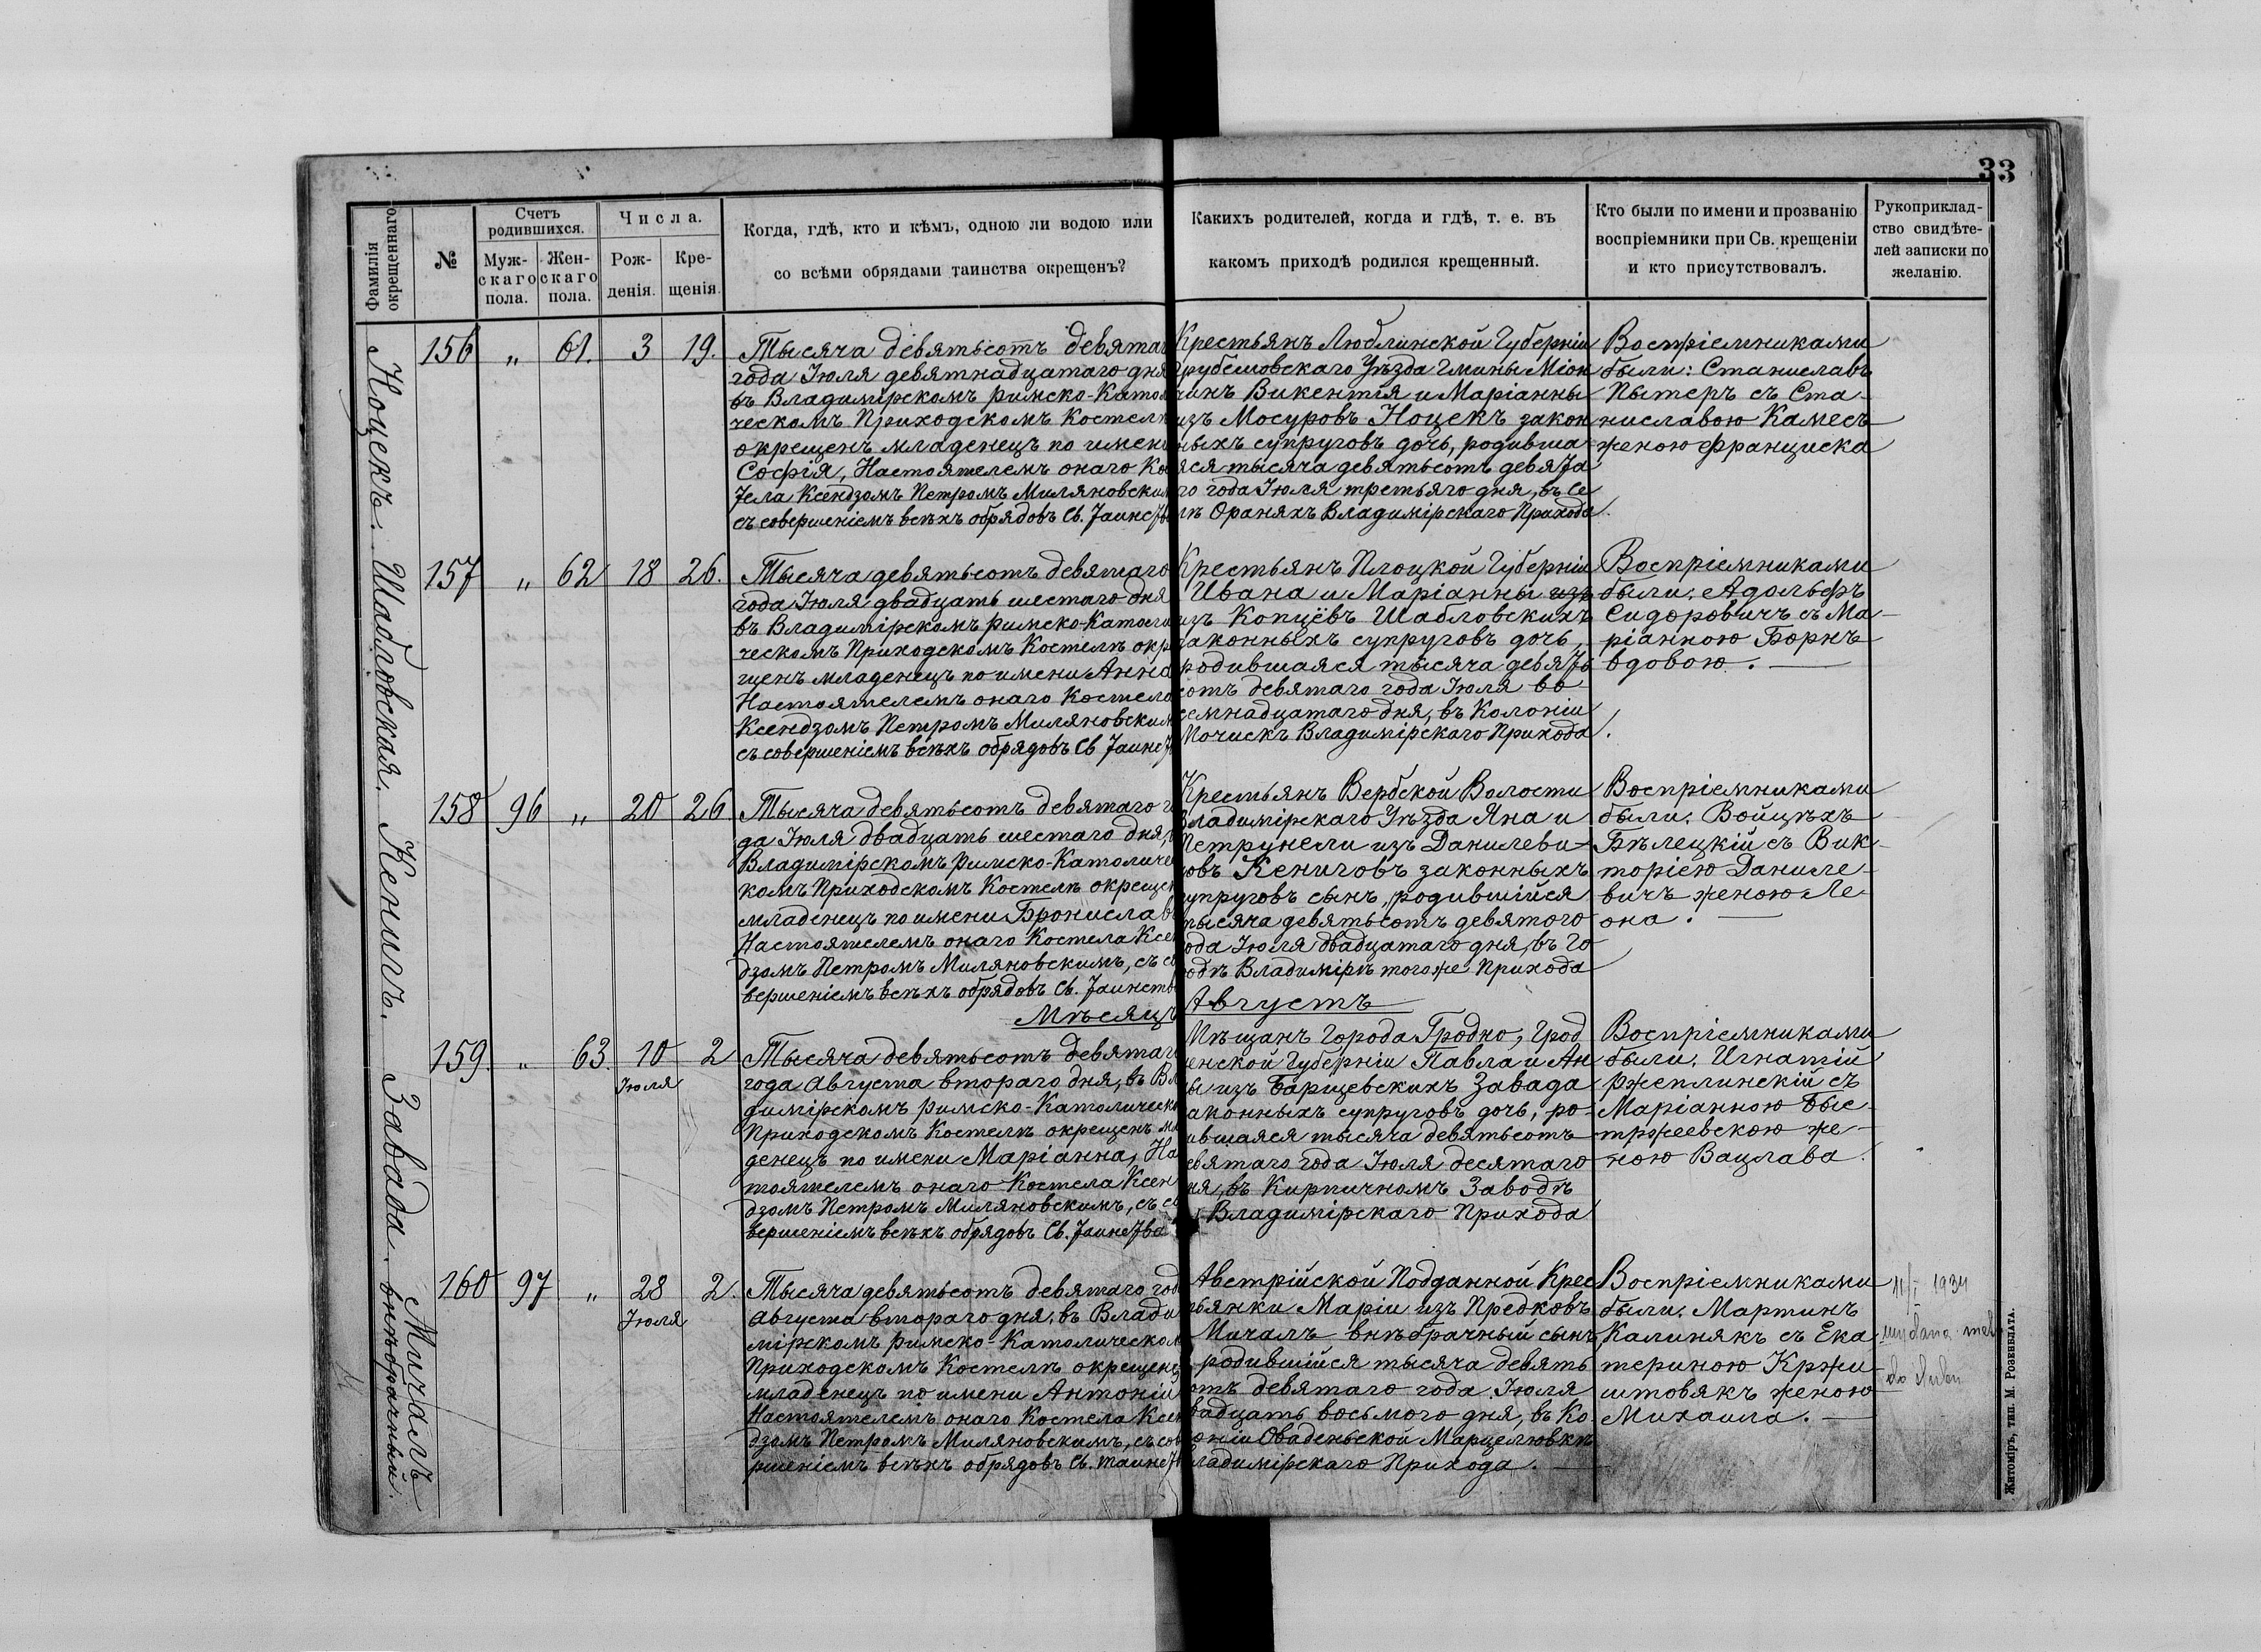 33
Фамилія окрещеннаго
№
Счетъ родившихся.
Муж-скаго пола.
Жен-скаго пола.
Числа.
Рож-денія.
Кре-щенія.
Когда, гдѣ, кто и кѣмъ, одною ли водою или
со всѣми обрядами таинства окрещенъ?
Какихъ родителей, когда и гдѣ, т. е. въ
какомъ приходѣ родился крещенный.
Кто были по имени и прозванію
воспріемники при Св. крещеніи
и кто присутствовалъ.
Рукоприклад-
ство свидѣте-
лей записки по
желанію.
Ноцекъ.
156 „ 61. 3 19.
Тысяча девятьсотъ девятаг
года Іюля девятнадцатаго дня
въ Владимірскомъ Римско-Катол
ческомъ Приходскомъ Костелѣ
окрещенъ младенецъ по имени
Софія, Настоятелемъ онаго Ко
тела Ксендзомъ Петромъ Миляновским
съ совершеніемъ всѣхъ обрядовъ Св. Таинств
Крестьянъ Люблинской Губерніи
Грубешовскаго Уѣзда Гмины Міон
чинъ Викентія и Маріанны
изъ Мосуровъ Ноцекъ закон
ныхъ супруговъ дочь, родивша
яся тысяча девятьсотъ девята
го года Іюля третьяго дня, въ Се
лѣОраняхъ Владимірскаго Прихода.
Воспріемниками
были: Станиславъ
Пытеръ съ Ста-
ниславою Камесъ
женою Франциска
Шабловская.
157 „ 62 18 26.
Тысяча девятьсотъ девятаго
года Іюля двадцать шестаго дня
въ Владимірскомъ Римско-Католи
ческомъ Приходскомъ Костелѣ окр
щенъ младенецъ по имени Анна
Настоятелемъ онаго Костела
Ксендзомъ Петромъ Миляновским
съ совершеніемъ всѣхъ обрядовъ Св Таинст
Крестьянъ Плоцкой Губерніи
Ивана и Маріанны изъ
изъ Копцёвъ Шабловскихъ
законныхъ супруговъ дочь,
родившаяся тысяча девять
сотъ девятаго года Іюля во
семнадцатаго дня, въ Колоніи
Почискъ Владимірскаго Прихода.
Воспріемниками
были: Адольфъ
Сидоровичъ съ Ма-
ріанною Борнъ
вдовою.
Кенигъ.
158 96 „ 20 26
Тысяча девятьсотъ девятаго г
да Іюля двадцать шестаго дня,
Владимірскомъ Римско-Католиче
комъ Приходскомъ Костелѣ окрещен
младенецъ по имени Брониславъ
Настоятелемъ онаго Костела Ксен
дзомъ Петромъ Миляновскимъ, съ с
вершеніемъ всѣхъ обрядовъ Св. Таинств
Крестьянъ Вербской Волости
Владимірскаго Уѣзда Яна и
Петрунели изъ Данилеви-
човъ Кениговъ законныхъ
супруговъ сынъ, родившійся
тысяча девятьсотъ девятого
года Іюля двадцатаго дня, въ Го
родѣ Владимірѣ тогоже Прихода
Воспріемниками
были: Войцѣхъ
Бѣлецкій съ Вик-
торіею Даниле-
вичъ женою Ле-
она.
Мѣсяцъ
Августъ
Завада.
159. „ 63. 10 2
Іюля
Тысяча девятьсотъ девятаг
года Августа втораго дня, въ Вл
димірскомъ Римско-Католическо
Приходскомъ Костелѣ окрещенъ мл
денецъ по имени Маріанна, На
тоятелемъ онаго Костела Ксен
дзомъ Петромъ Миляновскимъ, съ с
вершеніемъ всѣхъ обрядовъ Св. Таинства
Мѣщанъ Города Гродно, Грод
ненской Губерніи Павла и Ан
ны изъ Барщевскихъ Завада
законныхъ супруговъ дочь, ро-
дившаяся тысяча девятьсотъ
девятаго года Іюля десятаго
дня, въ Кирпичномъ Заводѣ
Владимірскаго Прихода
Воспріемниками
были: Игнатій
Ржеплинскій съ
Маріанною Бые-
тржеевскою же-
ною Вацлава.
Мичалъ
внѣбрачный.
160 97 „ 28 2.
Іюля
Тысяча девятьсотъ девятаго год
Августа втораго дня, въ Влади
мірскомъ Римско-Католическом
Приходскомъ Костелѣ окрещенъ
младенецъ по имени Антоній
Настоятелемъ онаго Костела Ксен
дзомъ Петромъ Миляновскимъ, съ сов
ршеніемъ всѣхъ обрядовъ Св. таинст
Австрійской Подданной Крес
тьянки Маріи изъ Предковъ
Мичалъ внѣбрачный сынъ,
родившійся тысяча девять
сотъ девятаго года Іюля
двадцать восьмого дня, въ Ко
лоніи Оваденьской Марцелювкѣ
Владимірскаго Прихода.
Воспріемниками
были: Мартинъ
Калинякъ съ Ека
териною Кржи-
штовякъ женою
Михаила.
1934
wydano met
Житоміръ, тип. М. Розенблата.